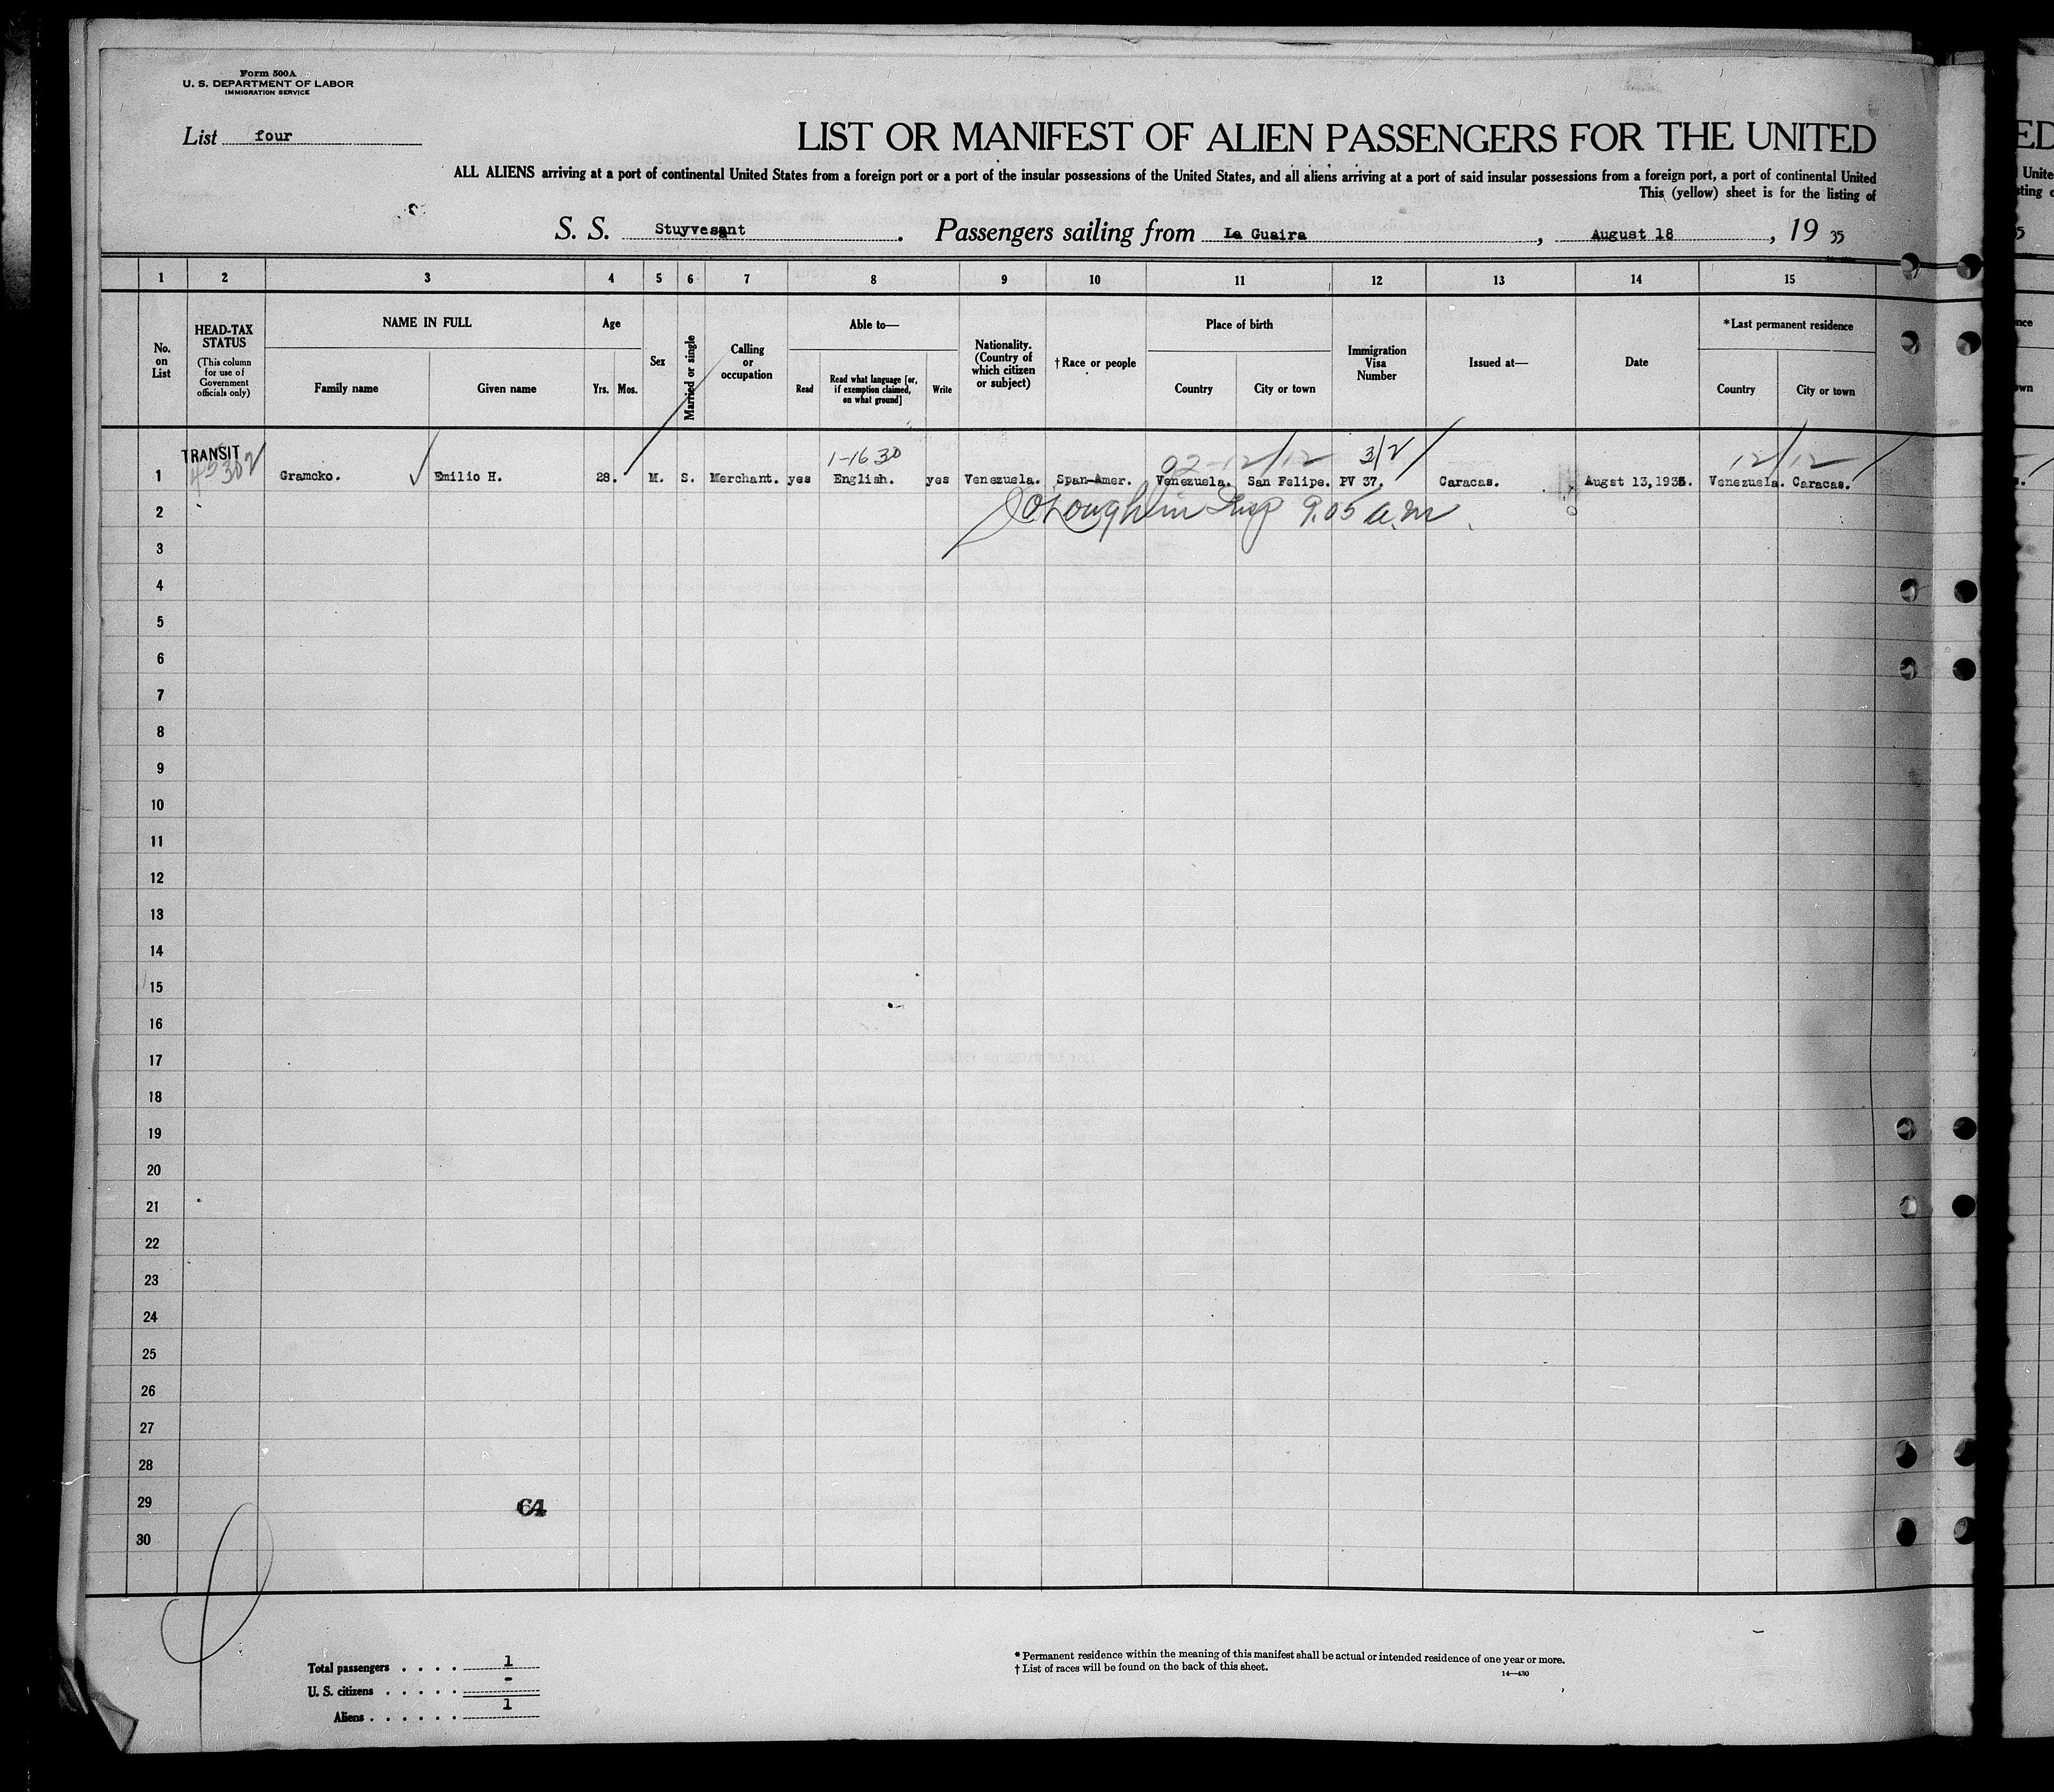 Form 500A
U. S. DEPARTMENT OF LABOR
IMMIGRATION SERVICE
List four
LIST OR MANIFEST OF ALIEN PASSENGERS FOR THE UNITED
ALL ALIENS arriving at a port of continental United States from a foreign port or a port of the insular possessions of the United States, and all aliens arriving at a port of said insular possessions from a foreign port, a port of continental United
This (yellow) sheet is for the listing of
S. S. Stuyvesant. Passengers sailing from La Guaira, August 18, 1935
1 2 3 4 5 6 7 8 9 10 11 12 13 14 15
No. on List
HEAD-TAX STATUS
(This column for use of Government officials only)
NAME IN FULL
Family name
Given name
Age
Yrs. Mos.
Sex
Married or single
Calling or occupation
Able to—
Read
Read what language [or, if exemption claimed, on what ground]
Write
Nationality. (Country of which citizen or subject)
†Race or people
Place of birth
Country
City or town
Immigration Visa Number
Issued at—
Date
*Last permanent residence
Country
City or town
TRANSIT
1-16 30
02-12/12 3/2 12/12
1 Gramcko. Emilio H. 28. M. S. Merchant. yes English. yes Venezuela. Span-Amer. Venezuela. San Felipe. PV 37. Caracas. Augst 13,1935. Venezuela. Caracas.
2 O'Loughlin Insp 9.05 a.m.
3
4
5
6
7
8
9
10
11
12
13
14
15
16
17
18
19
20
21
22
23
24
25
26
27
28
29
30
Total passengers . . . . 1
U. S. citizens . . . . . -
Aliens . . . . . . 1
* Permanent residence within the meaning of this manifest shall be actual or intended residence of one year or more.
† List of races will be found on the back of this sheet.
14—430